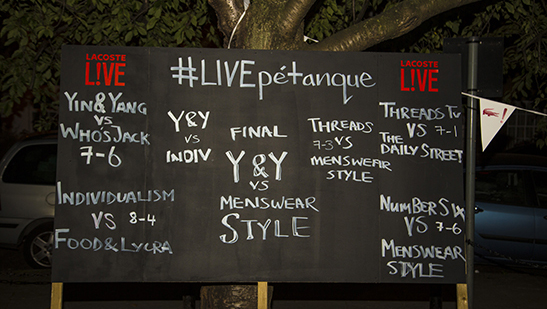 LACOSTE
L!VE
#LIVEpétanque
LACOSTE
L!VE
YIN&YANG
VS
WHO'SJACK
7-6
INDIVIDUALISM
VS 8-4
FOOD&LYCRA
Y&Y
VS
INDIV
FINAL
Y&Y
VS
MENSWEAR
STYLE
THREADS
7-3 VS
MENSWEAR
STYLE
THREADS TV
VS 7-1
THE
DAILY STREET
NUMBER SIX
VS 7-6
MENSWEAR
STYLE